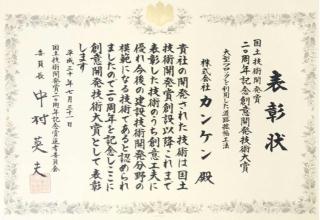 表彰状
国土技術開発賞
二〇周年記念創意開発技術大賞
大型ブロックを利用した道路拡幅工法
株式会社 カンケン 殿
貴社の開発された技術は国土
技術開発賞創設以降これまで
表彰した技術のうち創意工夫に
優れ今後の建設技術開発分野の
模範になる技術であると認められ
ましたので二〇周年を記念しここに
創意開発技術大賞として表彰
します
平成三十年七月三十一日
国土技術開発賞二〇周年記念賞選考委員会
委員長 中村英夫